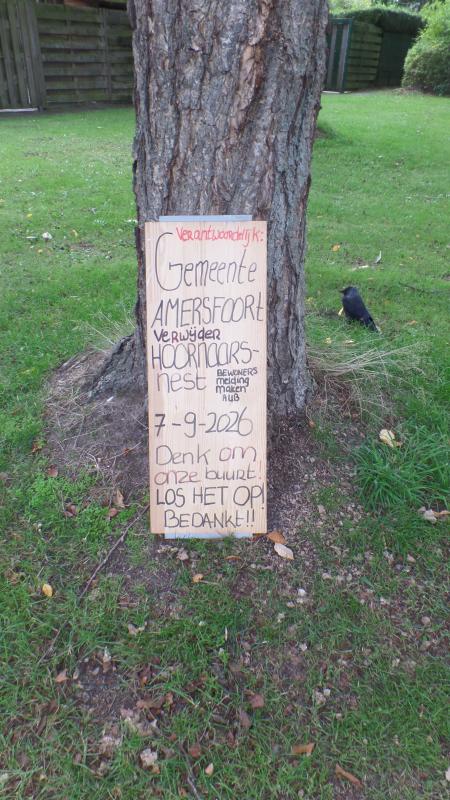 Verantwoordelijk:
Gemeente
AMERSFOORT
Verwijder
HOORNAARS-
NEST
BEWONERS
melding
maken
AUB
7-9-2026
Denk om
onze buurt!
LOS HET OP!
BEDANKT!!